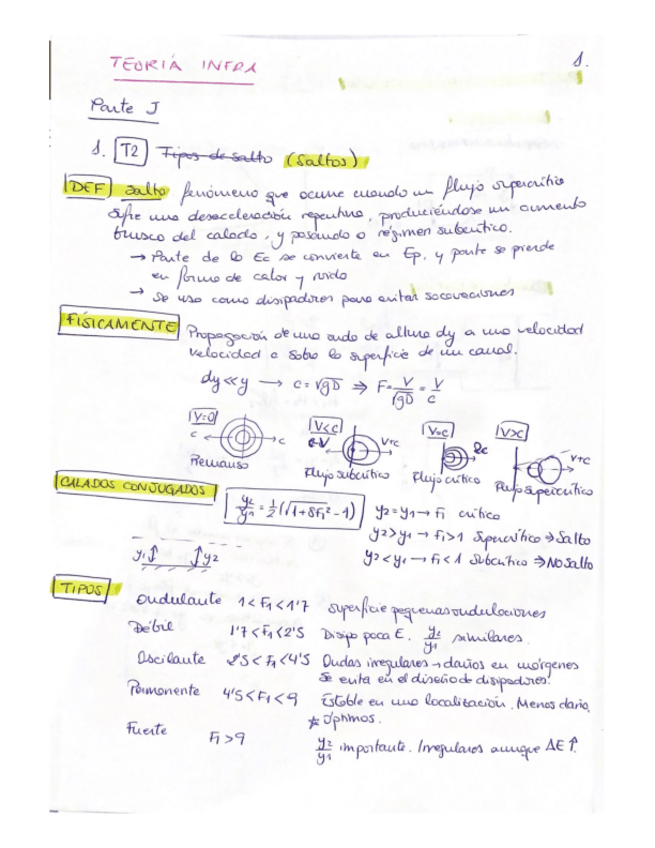 TEORÍA INFRA
1.
Parte I
1. T2 Tipos de salto (Saltos)
DEF salto fenómeno que ocurre cuando un flujo supercrítico
sufre una desaceleración repentina, produciéndose un aumento
brusco del calado, y pasando a régimen subcrítico.
→ Parte de la Ec se convierte en Ep, y parte se pierde
en forma de calor y ruido
→ Se usa como disipadores para evitar socavaciones
FÍSICAMENTE Propagación de una onda de altura dy a una velocidad
velocidad c sobre la superficie de un canal.
dy<<y → c=√gD ⇒ F=V/√gD=V/c
V=0 V<c V=c V>c
c c c-V V+c 2c V+c
Remanso Flujo subcrítico Flujo crítico Flujo supercrítico
CALADOS CONJUGADOS y2/y1=1/2(√1+8F1²-1) y2=y1→F1 crítico
y2>y1→F1>1 Supercrítico⇒Salto
y1 y2 y2<y1→F1<1 Subcrítico⇒No salto
TIPOS
Ondulante 1<F1<1'7 superficie pequeñas ondulaciones
Débil 1'7<F1<2'5 Disipa poca E. y2/y1 similares.
Oscilante 2'5<F1<4'5 Ondas irregulares→daños en márgenes
Se evita en el diseño de disipadores.
Permanente 4'5<F1<9 Estable en una localización. Menos daño.
* óptimos.
Fuerte F1>9 y2/y1 importante. Irregulares aunque ΔE↑.